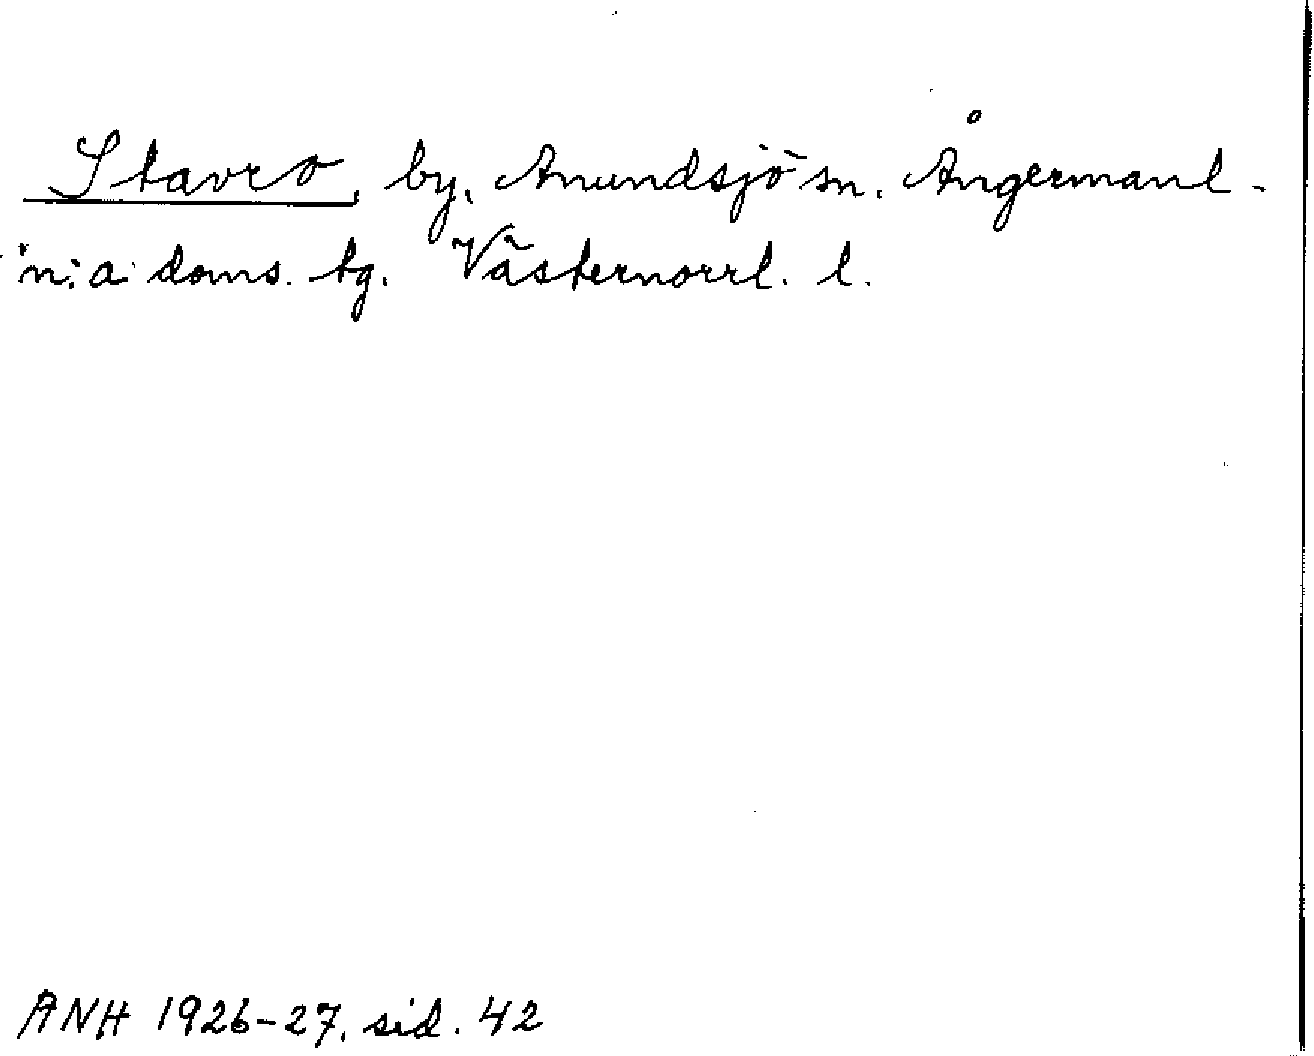 Stavro, by, Anundsjö sn. Ångermanl -
n:a doms. tg. Västernorrl. l.
ANH 1926-27, sid. 42